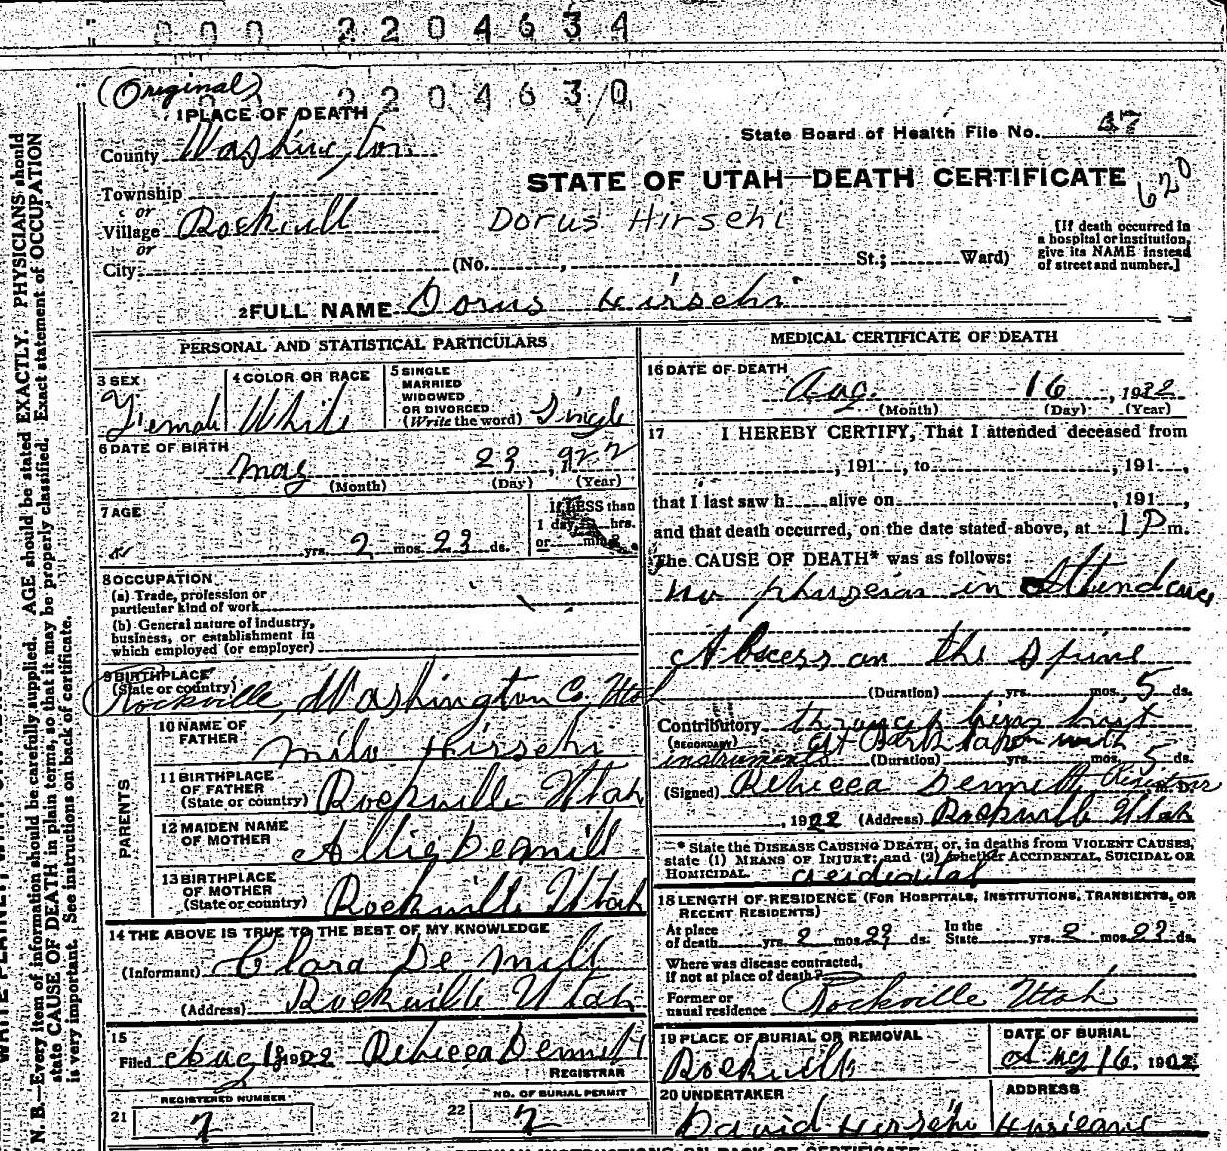 000 2204634
(Original)
00 2204630
1 PLACE OF DEATH
State Board of Health File No. 47
County Washington
620
STATE OF UTAH—DEATH CERTIFICATE
Township
or
Village Rockvill
Dorus Hirschi
or
City (No. , St.; Ward)
[If death occurred in
a hospital or institution,
give its NAME instead
of street and number.]
2 FULL NAME Dorus Hirschi
PERSONAL AND STATISTICAL PARTICULARS
3 SEX
Femal
4 COLOR OR RACE
White
5 SINGLE
MARRIED
WIDOWED
OR DIVORCED
(Write the word) Single
6 DATE OF BIRTH
May 23, 1922
(Month) (Day) (Year)
7 AGE
yrs. 2 mos. 23 ds.
If LESS than
1 day, hrs.
or min.?
8 OCCUPATION
(a) Trade, profession or
particular kind of work
(b) General nature of industry,
business, or establishment in
which employed (or employer)
9 BIRTHPLACE
(State or country)
Rockville, Washington Co. Utah
PARENTS
10 NAME OF
FATHER
Milo Hirschi
11 BIRTHPLACE
OF FATHER
(State or country) Rockville Utah
12 MAIDEN NAME
OF MOTHER
Allie Demill
13 BIRTHPLACE
OF MOTHER
(State or country) Rockville Utah
14 THE ABOVE IS TRUE TO THE BEST OF MY KNOWLEDGE
(Informant) Clara De Mill
(Address) Rockville Utah
15
Filed Aug 18 1922 Rebecca Demill
REGISTRAR
REGISTERED NUMBER
21 2
NO. OF BURIAL PERMIT
22 2
MEDICAL CERTIFICATE OF DEATH
16 DATE OF DEATH
Aug. 16, 1922
(Month) (Day) (Year)
17 I HEREBY CERTIFY, That I attended deceased from
, 191 , to , 191 ,
that I last saw h alive on , 191 ,
and that death occurred, on the date stated above, at 1 P m.
The CAUSE OF DEATH* was as follows:
no physesian in Attendance
Abscess on the Spine
(Duration) yrs. mos. 5 ds.
Contributory through being
(SECONDARY)
at Birth taken with
instruments (Duration) yrs. mos. 5 ds.
(Signed) Rebecca Demill Registrar M. D.
, 1922 (Address) Rockville Utah
* State the DISEASE CAUSING DEATH, or, in deaths from VIOLENT CAUSES,
state (1) MEANS OF INJURY; and (2) whether ACCIDENTAL, SUICIDAL OR
HOMICIDAL. accidental
18 LENGTH OF RESIDENCE (FOR HOSPITALS, INSTITUTIONS, TRANSIENTS, OR
RECENT RESIDENTS)
At place
of death yrs. 2 mos. 23 ds.
In the
State yrs. 2 mos. 23 ds.
Where was disease contracted,
if not at place of death?
Former or
usual residence Rockville Utah
19 PLACE OF BURIAL OR REMOVAL
Rockville
DATE OF BURIAL
Aug 16, 1922
20 UNDERTAKER
David Hirschi
ADDRESS
N. B.—Every item of information should be carefully supplied. AGE should be stated EXACTLY. PHYSICIANS should
state CAUSE OF DEATH in plain terms, so that it may be properly classified. Exact statement of OCCUPATION
is very important. See instructions on back of certificate.